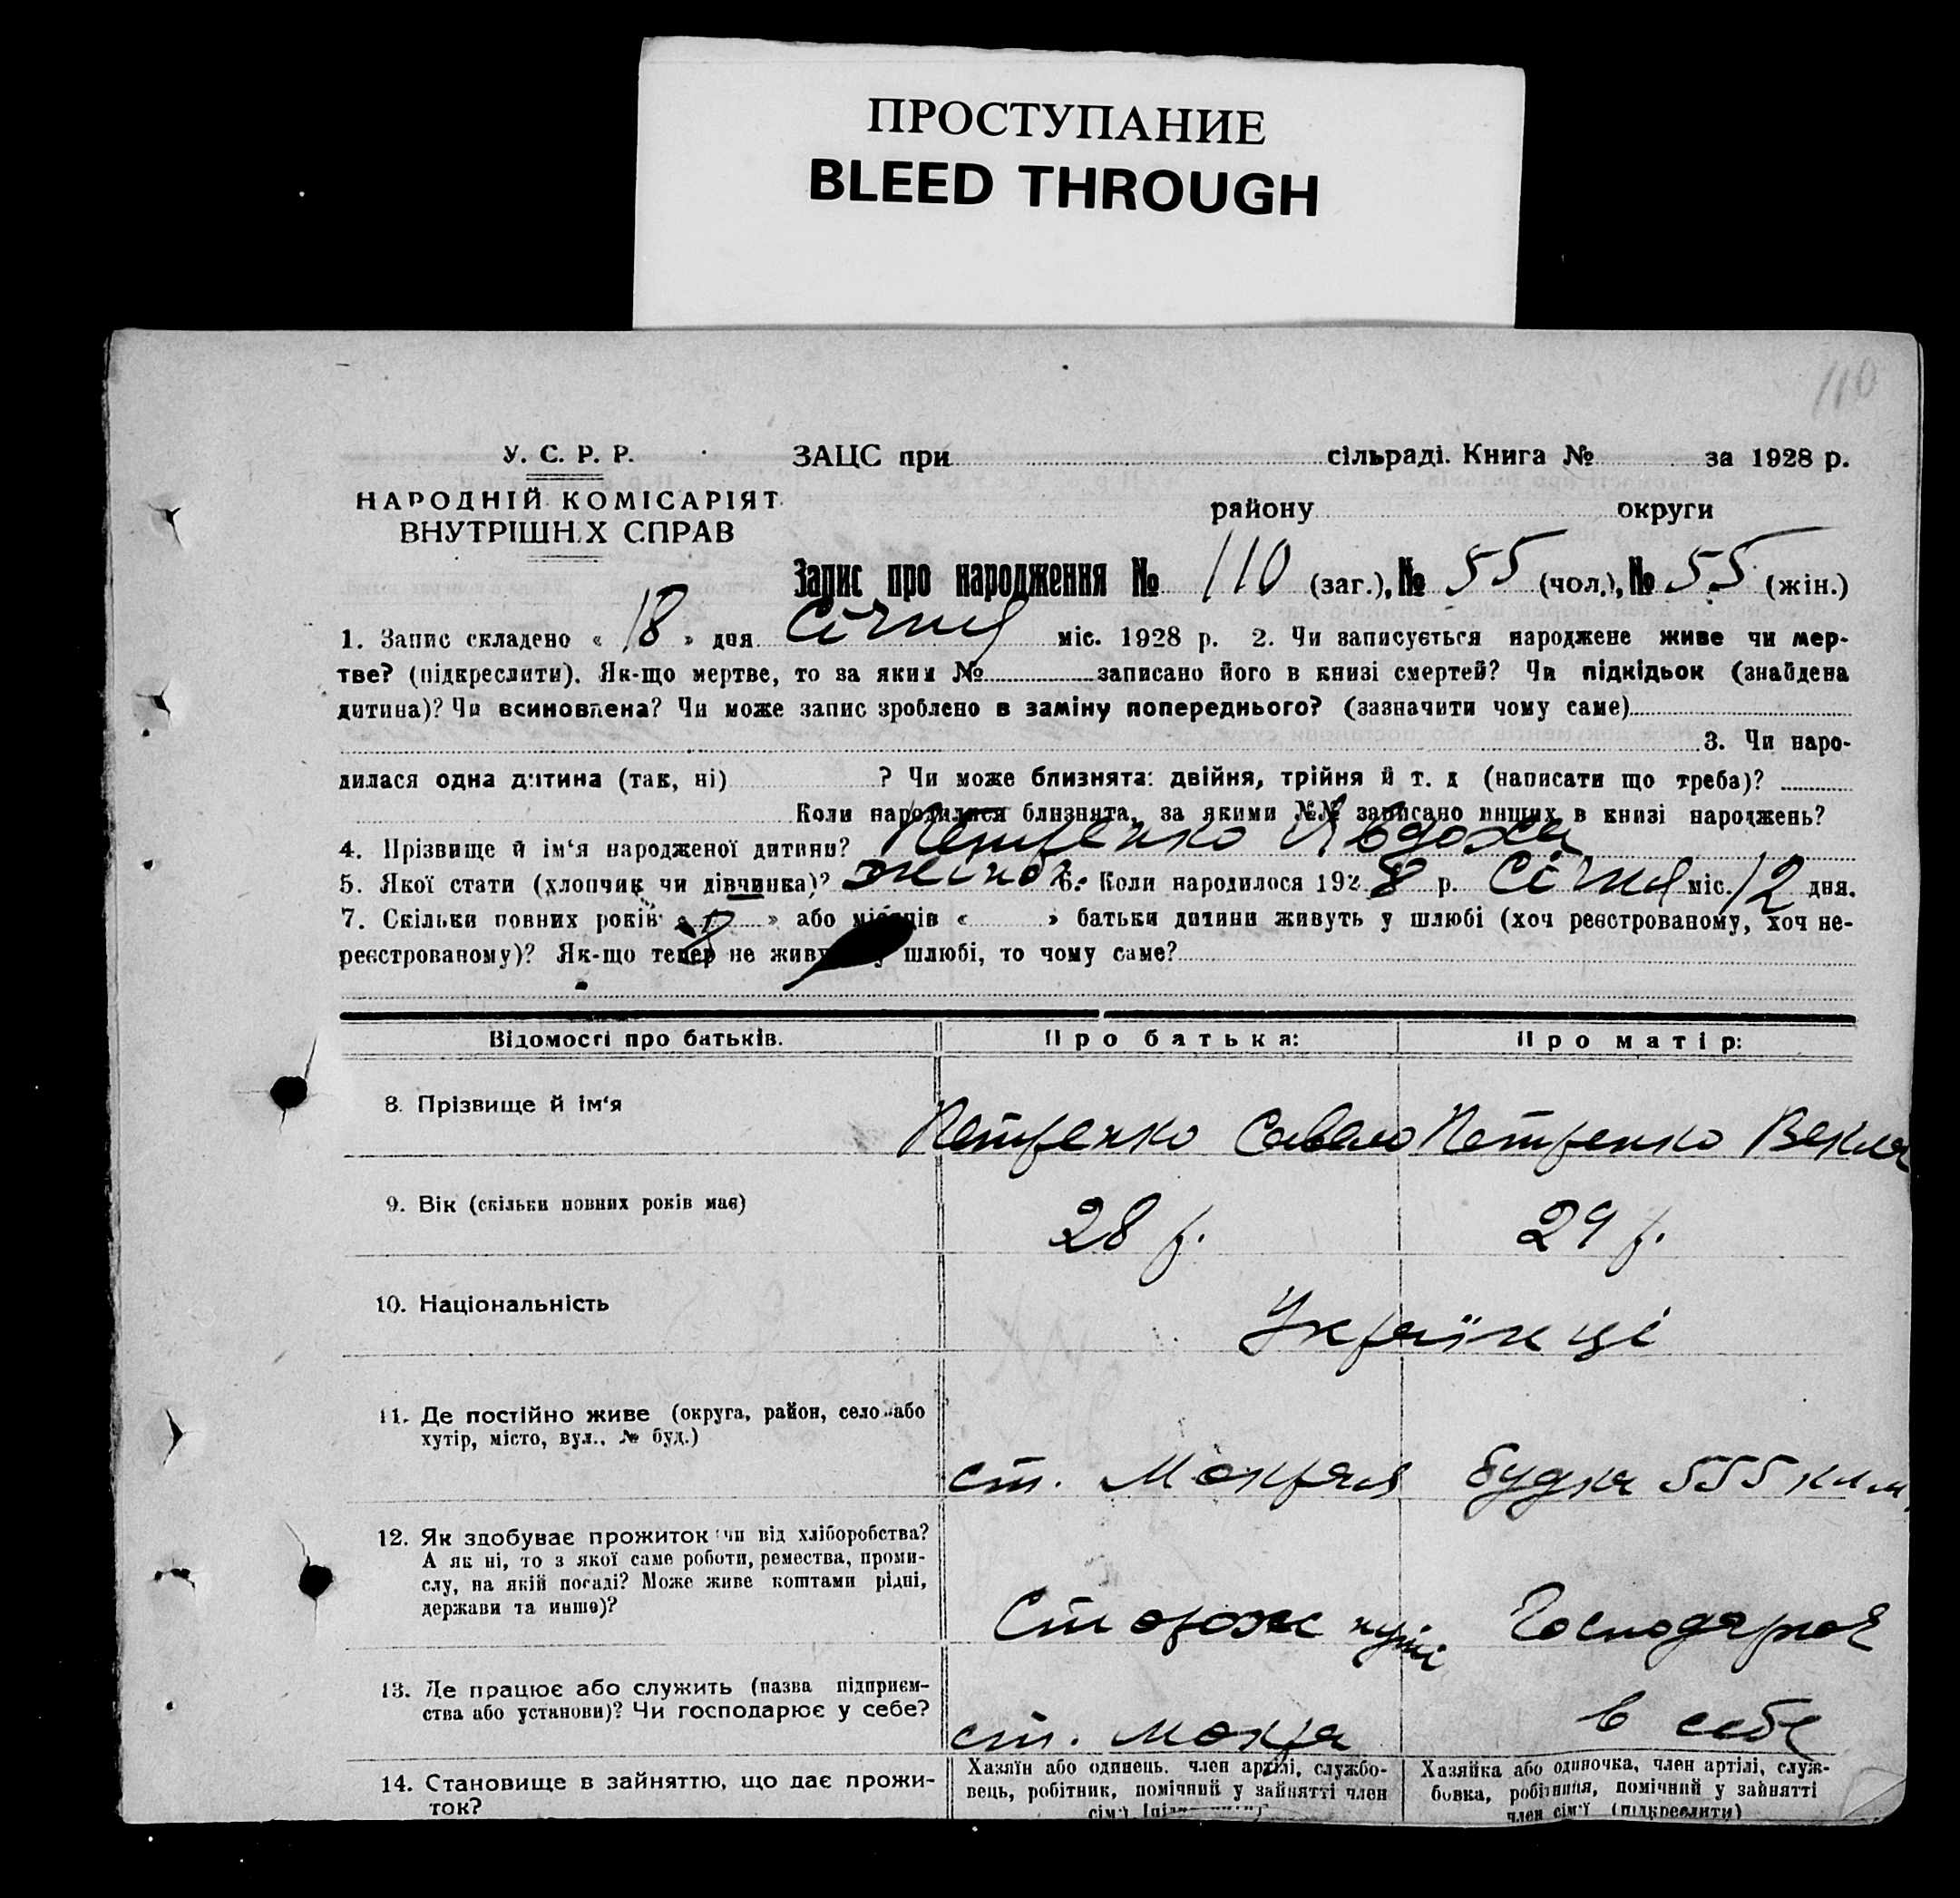 ПРОСТУПАНИЕ
BLEED THROUGH
110
У. С. Р. Р.
НАРОДНІЙ КОМІСАРІЯТ
ВНУТРІШН.Х СПРАВ
ЗАЦС при сільраді. Книга № за 1928 р.
району округи
Запис про народження № 110 (заг.), № 55 (чол.), № 55 (жін.)
1. Запис складено « 18 » дня Січня міс. 1928 р. 2. Чи записується народжене живе чи мер-
тве? (підкреслити). Як-що мертве, то за яким № записано його в книзі смертей? Чи підкідьок (знайдена
дитина)? Чи всиновлена? Чи може запис зроблено в заміну попереднього? (зазначити чому саме)
3. Чи наро-
дилася одна дитина (так, ні) ? Чи може близнята: двійня, трійня й т. д (написати що треба)?
Коли народилися близнята, за якими №№ записано инших в книзі народжень?
4. Прізвище й ім‘я народженої дитини? Петренко Явдоха
5. Якої стати (хлопчик чи дівчинка)? жіноч. 6. Коли народилося 1928 р. Січня міс. 12 дня.
7. Скільки повних років « 8 » або місяців « » батьки дитини живуть у шлюбі (хоч реєстрованому, хоч не-
реєстрованому)? Як-що тепер не живуть у шлюбі, то чому саме?
Відомості про батьків. Про батька: Про матір:
8. Прізвище й ім‘я Петренко Савело Петренко Векля
9. Вік (скільки повних років має) 28 р. 29 р.
10. Національність Українці
11. Де постійно живе (округа, район, село або
хутір, місто, вул., № буд.)
ст. Мокрая будка 555 клм.
12. Як здобуває прожиток чи від хліборобства?
А як ні, то з якої саме роботи, ремества, проми-
слу, на якій посаді? Може живе коштами рідні,
держави та инше)?
Сторож путі Господарює
13. Де працює або служить (назва підприєм-
ства або установи)? Чи господарює у себе?
ст. Мокра в себе
14. Становище в зайняттю, що дає прожи-
ток?
Хазяїн або одинець, член артілі, службо-
вець, робітник, помічний у зайнятті член
сім'ї
Хазяйка або одиночка, член артілі, служ-
бовка, робітниця, помічний у зайнятті
член сім‘ї (підкреслити)